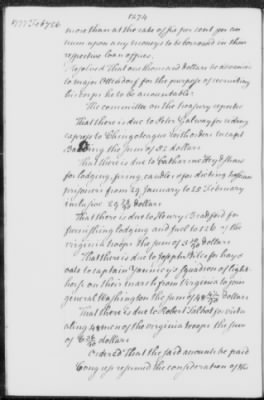 1274
1777 Feb
more than at the rate of six per cent per an
num upon any moneys to be borrowed in their
respective loan offices.
Resolved That one thousand dollars be advanced
to major Ottendorf for the purpose of recruiting
his corps he to be accountable.
The committee on the treasury reported
That there is due to Peter Galway for riding
express to Chincoteague with orders to capt
the sum of 32 dollars
That there is due to Catharine Heydshaw
for lodging, firing, candles & for dieting hessian
prisoners from 29 January to 25 February
inclusive 29 dollars
That there is due to Henry Bradford for
furnishing lodging and fuel to 126 of the
virginia troops the sum of dollars
That there is due to Joseph for hay &
oats to captain squadron of light
horse on their march from Virginia to join
general Washington the sum of 48 dollars
That there is due to Robert Talbot for victu
alling 48 men of the virginia troops the sum
of dollars
Ordered That the said accounts be paid
Congress resumed the consideration of the